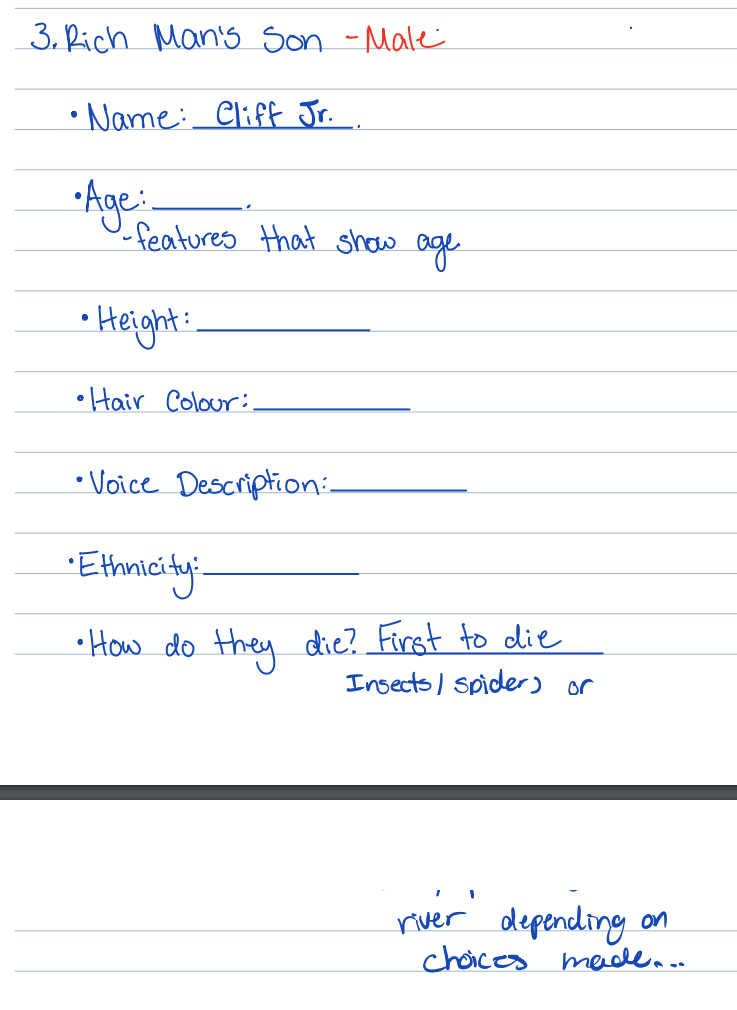 3. Rich Man's Son - Male
• Name: Cliff Jr.
• Age: ______.
- features that show age
• Height: ______
• Hair Colour: ______
• Voice Description: ______
• Ethnicity: ______
• How do they die? First to die
Insects/spiders or
river depending on
choices made...